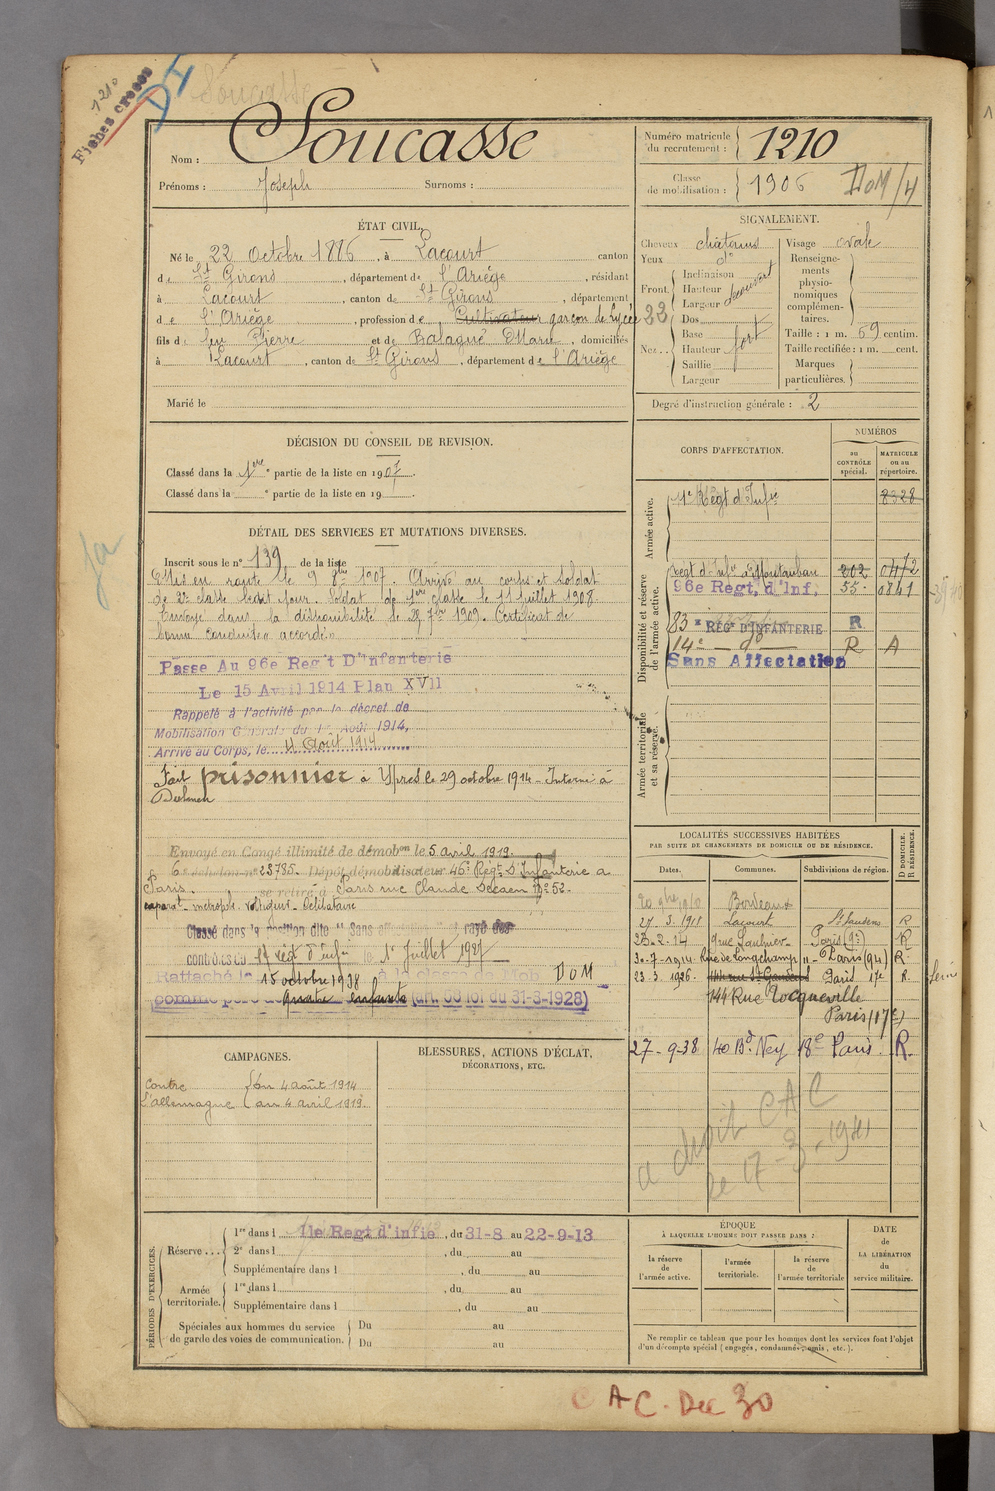 1210
Fiches croces
DI
Soucasse
Nom : Soucasse
Prénoms : Joseph Surnoms :
Numéro matricule du recrutement : 1210
Classe de mobilisation : 1906 DoM/4
ÉTAT CIVIL.
Né le 22 Octobre 1886, à Lacourt canton
de St Girons, département de l'Ariège, résidant
à Lacourt, canton de St Girons, département
de l'Ariège, profession de Cultivateur garçon de Lycée
fils de feu Pierre et de Balagué Marie, domiciliés
à Lacourt, canton de St Girons, département de l'Ariège
Marié le
SIGNALEMENT.
Cheveux châtains
Yeux do
Front. Inclinaison
Hauteur découvert
Largeur
Nez.. Dos
Base
Hauteur fort
Saillie
Largeur
23
Visage ovale
Renseigne-
ments
physio-
nomiques
complémen-
taires.
Taille : 1 m. 59 centim.
Taille rectifiée : 1 m. cent.
Marques
particulières.
Degré d'instruction générale : 2
DÉCISION DU CONSEIL DE REVISION.
Classé dans la 1ère partie de la liste en 1907.
Classé dans la partie de la liste en 19
DÉTAIL DES SERVICES ET MUTATIONS DIVERSES.
Inscrit sous le n° 139 de la liste
Mis en route le 9 8bre 1907. Arrivé au corps et soldat
de 2e classe ledit jour. Soldat de 1ère classe le 11 juillet 1908.
Envoyé dans la disponibilité le 29 7bre 1909. Certificat de
bonne conduite « accordé »
Passe Au 96e Reg't D'Infanterie
Le 15 Avril 1914 Plan XVII
Rappelé à l'activité par le décret de
Mobilisation Générale du 1er Août 1914,
Arrivé au Corps, le 4 Août 1914
Fait prisonnier à Ypres le 29 octobre 1914 - Interné à
Dulmen
Envoyé en Congé illimité de démobon le 5 avril 1919.
6e échelon n° 23785. Dépôt démobilisateur 46e Régt d'Infanterie à
Paris. se retire à Paris rue Claude Decaen No 52.
rapat - métropole. Voltigeur - Célibataire
Classé dans la position dite "Sans affectation" et rayé des
contrôles du 14 régt d'infie le 1er Juillet 1927
Rattaché le 15 octobre 1938 à la classe de Mob DoM
comme père de quatre enfants (art. 58 loi du 31-3-1928)
CORPS D'AFFECTATION.
NUMÉROS
au CONTRÔLE spécial.
MATRICULE ou au répertoire.
Armée active.
Régt d'Infie 8328
Disponibilité et réserve de l'armée active.
Regt d'Infie de Montauban 202 0472
96e Regt, d'Inf. 55. 0841
83e RÉGt D'INFANTERIE R
14e do R A
Sans Affectation
Armée territoriale et sa réserve.
LOCALITÉS SUCCESSIVES HABITÉES
PAR SUITE DE CHANGEMENTS DE DOMICILE OU DE RÉSIDENCE.
Dates. Communes. Subdivisions de région. D DOMICILE. R RÉSIDENCE.
20 9bre 1910 Bordeaux
27. 3. 1911 Lacourt St Gaudens R
23-2-14 9 rue Saulnier Paris (9e) R
30-7-1914 Rue de Longchamp 11 - Paris R
23. 3. 1926. Paris 17e R.
144 Rue Tocqueville
Paris (17e)
27-9-38 40 Bd Ney 18e Paris. R.
a droit CAC
le 17-3-1941
CAMPAGNES.
Contre l'allemagne { du 4 août 1914
au 4 avril 1919.
BLESSURES, ACTIONS D'ÉCLAT,
DÉCORATIONS, ETC.
PÉRIODES D'EXERCICES.
Réserve... 1re dans l 11e Regt d'infie, du 31-8 au 22-9-13
2e dans l , du au
Supplémentaire dans l , du au
Armée territoriale. 1re dans l , du au
Supplémentaire dans l , du au
Spéciales aux hommes du service Du au
de garde des voies de communication. Du au
ÉPOQUE
À LAQUELLE L'HOMME DOIT PASSER DANS :
la réserve de l'armée active.
l'armée territoriale.
la réserve de l'armée territoriale
DATE de LA LIBÉRATION du service militaire.
Ne remplir ce tableau que pour les hommes dont les services font l'objet
d'un décompte spécial (engagés, condamnés, omis, etc.).
C A C. Dec 30